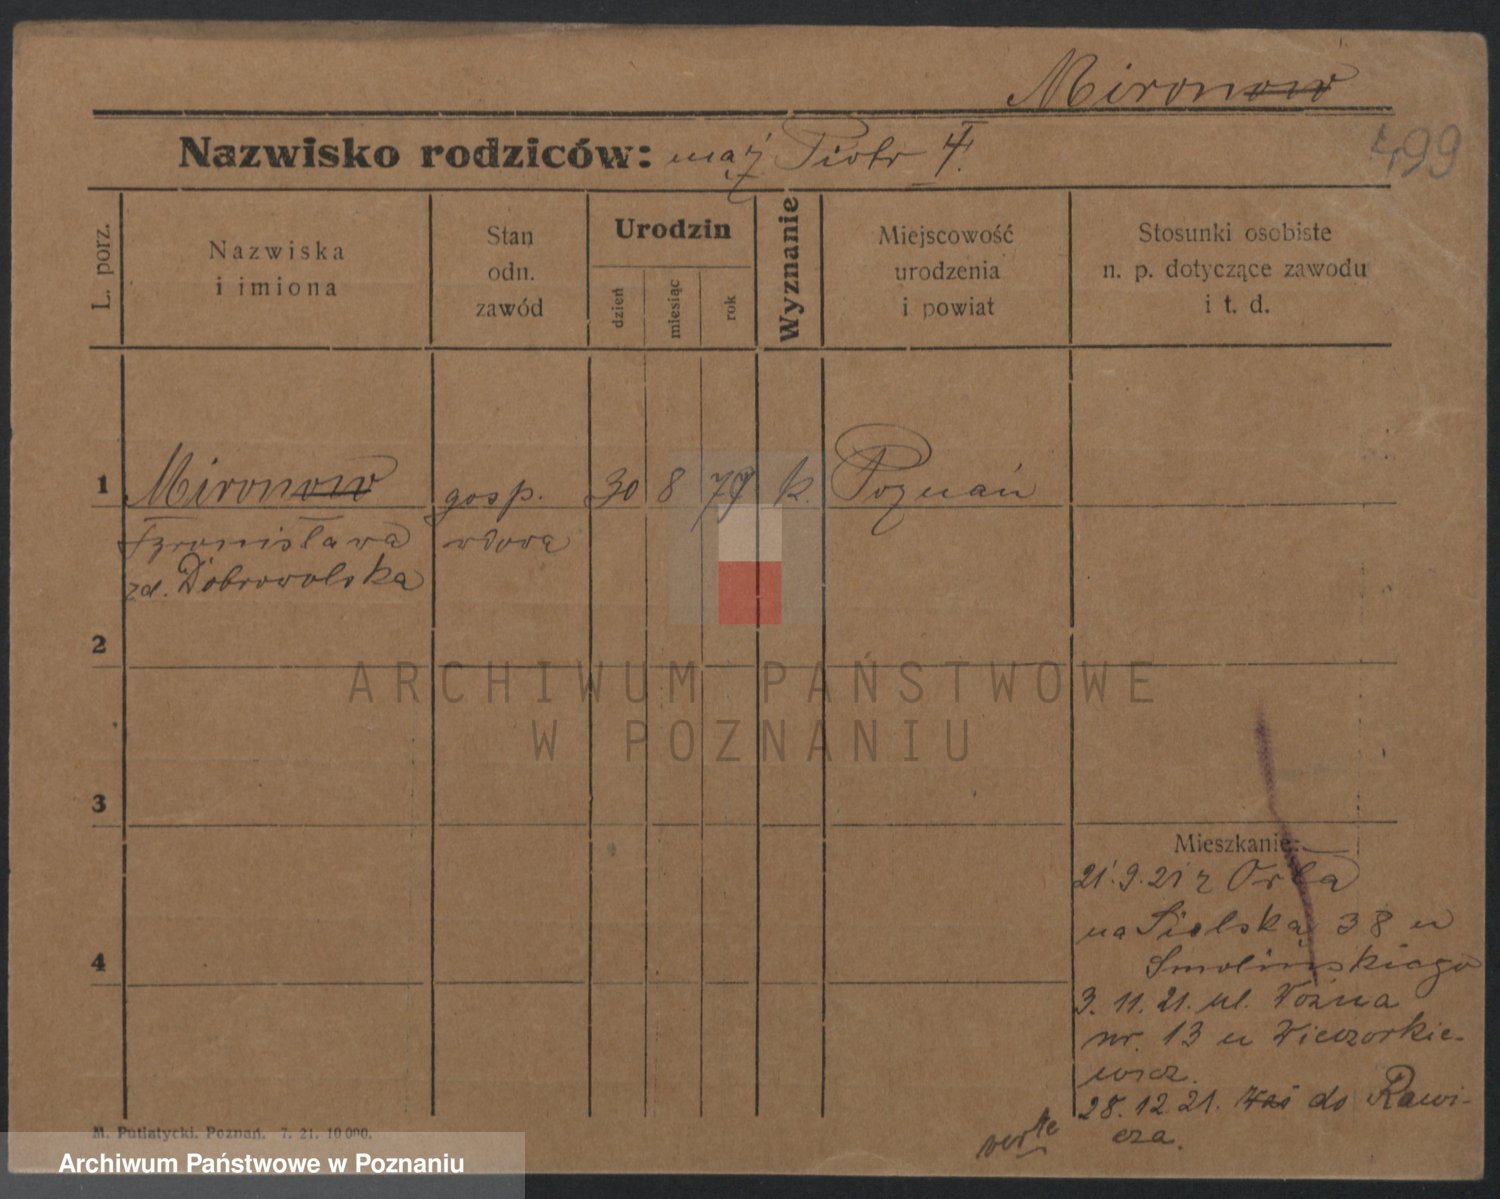 Mironow
499
Nazwisko rodziców: mąż Piotr
L. porz.
Nazwiska
i imiona
Stan
odn.
zawód
Urodzin
dzień
miesiąc
rok
Wyznanie
Miejscowość
urodzenia
i powiat
Stosunki osobiste
n. p. dotyczące zawodu
i t. d.
1 Mironow gosp. 30 8 79 k. Poznań
Bronisława wdowa
zd. Dobrowolska
2
ARCHIWUM PAŃSTWOWE
W POZNANIU
3
Mieszkanie:
21.9.21 z Orla
na Sielska 38 u
4
Smolińskiego
3. 11. 21. ul. Woźna
nr. 13 u Wieczorkie-
wicz.
28. 12. 21. do Rawi-
cza.
verte
M. Putiatycki. Poznań. 7. 21. 10 000.
Archiwum Państwowe w Poznaniu